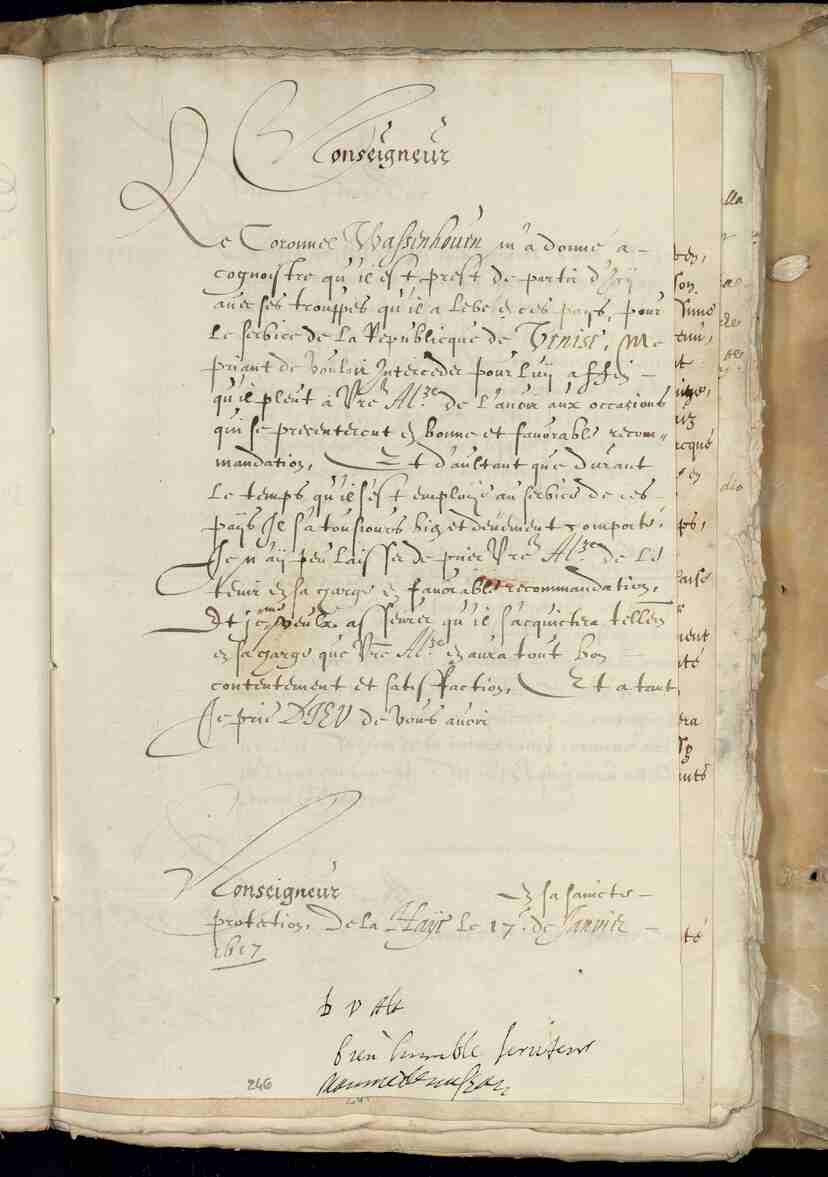 Monseigneur
Le Coronnel Wassenhouen m'a donné a
cognoistre qu'il est prest de partir d'Icy
avec ses trouppes qu'il a levé en ces pays, pour
le service de la Republicque de Venise, Me
priant de vouloir Interceder pour luy affin
qu'il pleut à Vre Alze de l'avoir aux occasions
qui se presenteront en bonne et favorable recom-
mandation, Et d'aultant que durant
le temps qu'il s'est employé au service de ces
pays Il s'a tousiours bien et deuement comporté,
Je n'ay peu laisser de prier Vre Alze de le
tenir en sa charge en favorable recommandation,
Et je veulx asseurer qu'il s'acquictera tellem
en sa charge que Vre Alze en aura tout bon
contentement et satisffaction, Et a tant
Je prie DIEV de vous avoir
Monseigneur en sa saincte
protection, De la Haye le 17e de Janvier
1617
b v Alt
bien humble serviteur
246